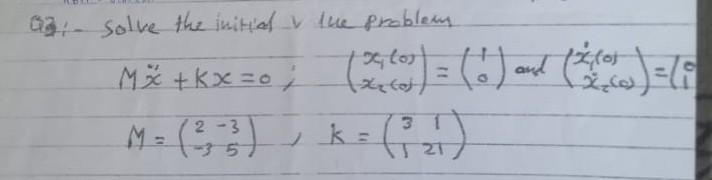 Q3:- Solve the initial v lue problem
Mẍ + Kx = 0 ; (x₁(0) x₂(0)) = (1 0) and (ẋ₁(0) ẋ₂(0)) = (0 1
M = (2 -3 -3 5) , k = (3 1 1 21)